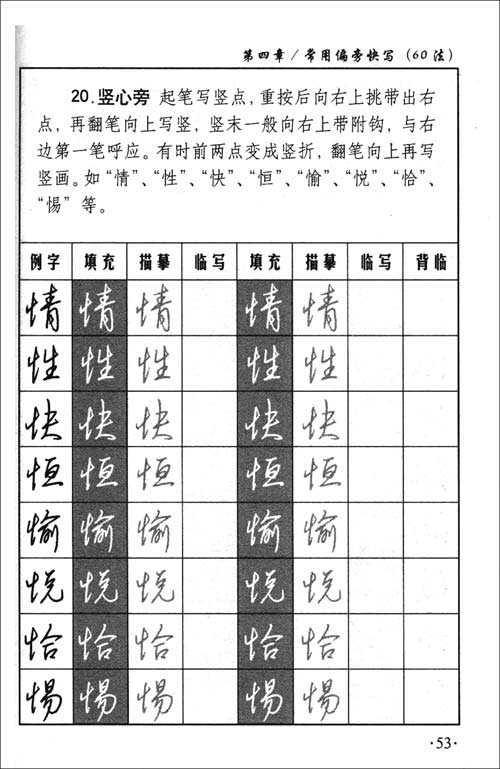 第四章/常用偏旁快写(60法)
20.竖心旁 起笔写竖点,重按后向右上挑带出右
点,再翻笔向上写竖,竖末一般向右上带附钩,与右
边第一笔呼应。有时前两点变成竖折,翻笔向上再写
竖画。如“情”、“性”、“快”、“恒”、“愉”、“悦”、“恰”、
“惕”等。
例字 填充 描摹 临写 填充 描摹 临写 背临
情 情 情 情 情
性 性 性 性 性
快 快 快 快 快
恒 恒 恒 恒 恒
愉 愉 愉 愉 愉
悦 悦 悦 悦 悦
恰 恰 恰 恰 恰
惕 惕 惕 惕 惕
·53·